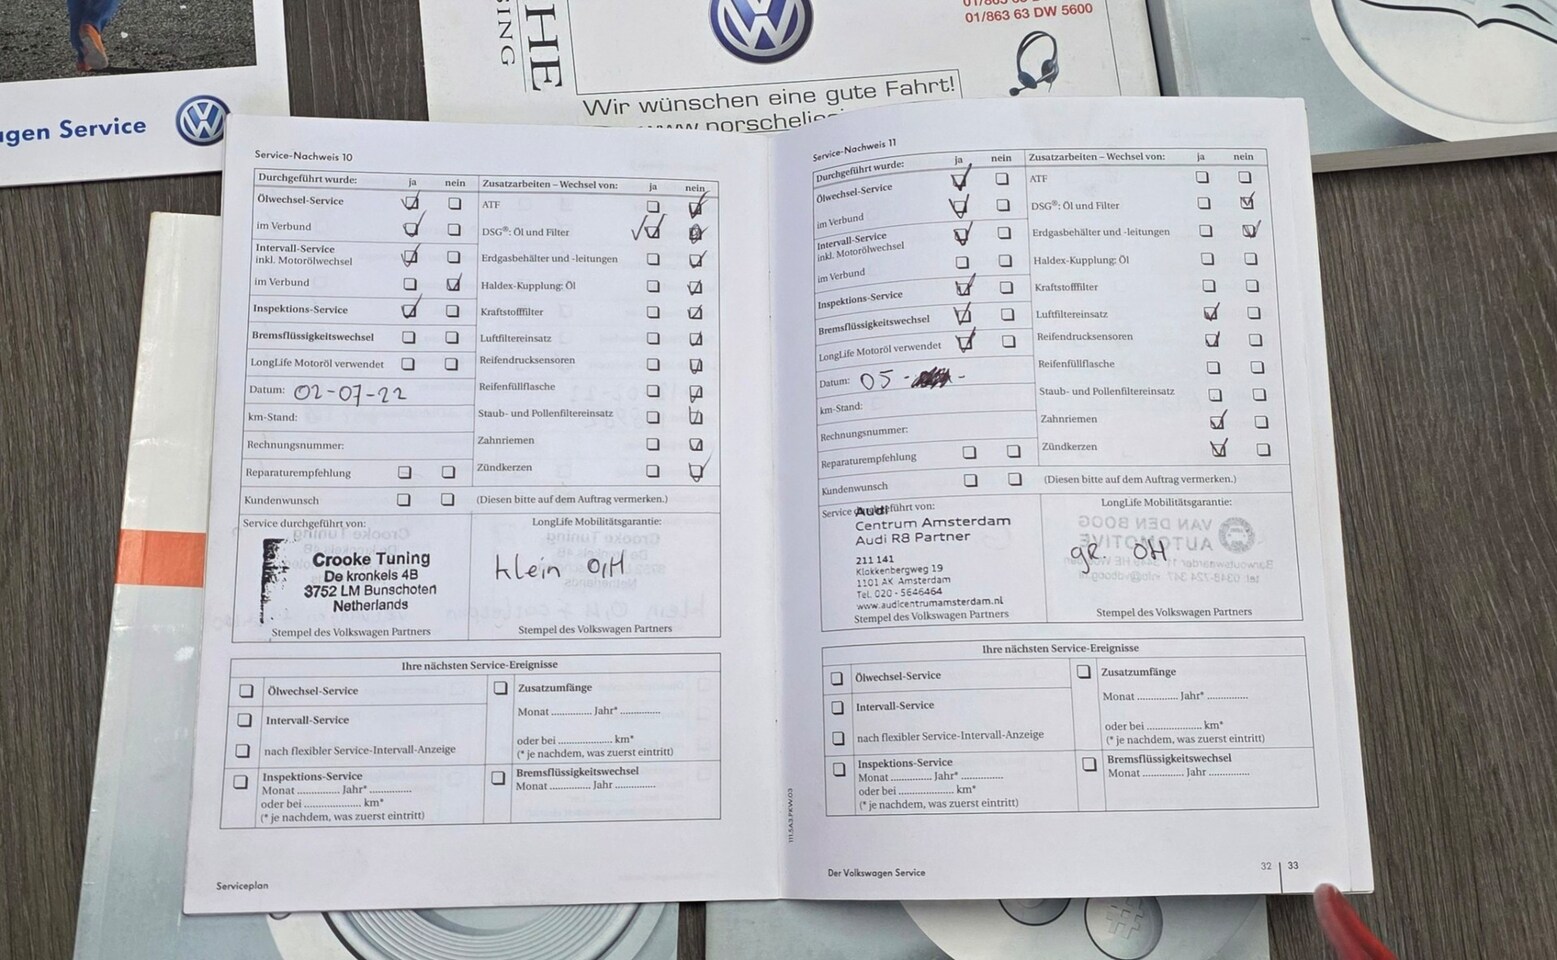 agen Service
HE
ING
01/863 63 DW 5600
Wir wünschen eine gute Fahrt!
Service-Nachweis 10
Durchgeführt wurde: ja nein Zusatzarbeiten – Wechsel von: ja nein
Ölwechsel-Service
im Verbund
Intervall-Service
inkl. Motorölwechsel
im Verbund
Inspektions-Service
Bremsflüssigkeitswechsel
LongLife Motoröl verwendet
Datum: 02-07-22
km-Stand:
Rechnungsnummer:
Reparaturempfehlung
Kundenwunsch
ATF
DSG®: Öl und Filter
Erdgasbehälter und -leitungen
Haldex-Kupplung: Öl
Kraftstofffilter
Luftfiltereinsatz
Reifendrucksensoren
Reifenfüllflasche
Staub- und Pollenfiltereinsatz
Zahnriemen
Zündkerzen
(Diesen bitte auf dem Auftrag vermerken.)
Service durchgeführt von:
Crooke Tuning
De kronkels 4B
3752 LM Bunschoten
Netherlands
Stempel des Volkswagen Partners
LongLife Mobilitätsgarantie:
klein O/H
Stempel des Volkswagen Partners
Ihre nächsten Service-Ereignisse
Ölwechsel-Service
Intervall-Service
nach flexibler Service-Intervall-Anzeige
Inspektions-Service
Monat ............. Jahr* .............
oder bei .................... km*
(* je nachdem, was zuerst eintritt)
Zusatzumfänge
Monat ............. Jahr* .............
oder bei .................... km*
(* je nachdem, was zuerst eintritt)
Bremsflüssigkeitswechsel
Monat ............. Jahr .............
Serviceplan
Service-Nachweis 11
Durchgeführt wurde: ja nein Zusatzarbeiten – Wechsel von: ja nein
Ölwechsel-Service
im Verbund
Intervall-Service
inkl. Motorölwechsel
im Verbund
Inspektions-Service
Bremsflüssigkeitswechsel
LongLife Motoröl verwendet
Datum: 05 - -
km-Stand:
Rechnungsnummer:
Reparaturempfehlung
Kundenwunsch
ATF
DSG®: Öl und Filter
Erdgasbehälter und -leitungen
Haldex-Kupplung: Öl
Kraftstofffilter
Luftfiltereinsatz
Reifendrucksensoren
Reifenfüllflasche
Staub- und Pollenfiltereinsatz
Zahnriemen
Zündkerzen
(Diesen bitte auf dem Auftrag vermerken.)
Service durchgeführt von:
Audi
Centrum Amsterdam
Audi R8 Partner
211 141
Klokkenbergweg 19
1101 AK Amsterdam
Tel. 020 - 5646464
www.audicentrumamsterdam.nl
Stempel des Volkswagen Partners
LongLife Mobilitätsgarantie:
gR. OH
Stempel des Volkswagen Partners
Ihre nächsten Service-Ereignisse
Ölwechsel-Service
Intervall-Service
nach flexibler Service-Intervall-Anzeige
Inspektions-Service
Monat ............. Jahr* .............
oder bei .................... km*
(* je nachdem, was zuerst eintritt)
Zusatzumfänge
Monat ............. Jahr* .............
oder bei .................... km*
(* je nachdem, was zuerst eintritt)
Bremsflüssigkeitswechsel
Monat ............. Jahr .............
111.5A3.PKW.03
Der Volkswagen Service
32 | 33